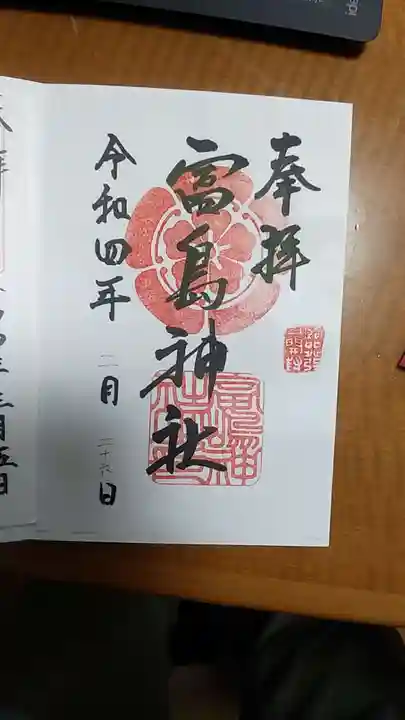 奉拝
富島神社
令和四年 二月 二十六日
三月五日